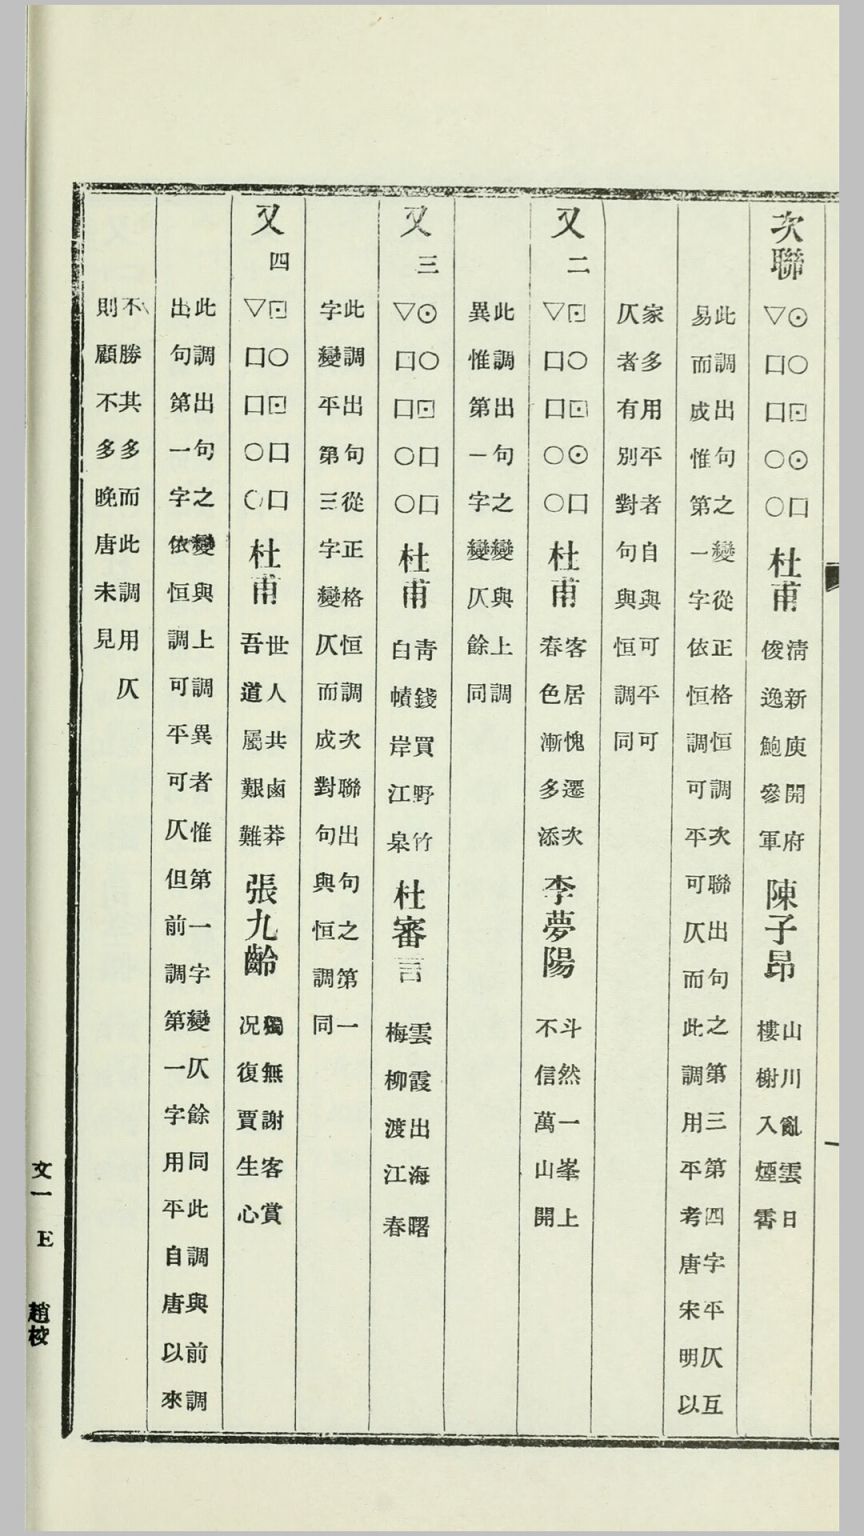 次聯
⊙○⊡⊙口
▽口口○○
杜甫
清新庾開府
俊逸鮑參軍
陳子昂
山川亂雲日
樓榭入煙霄
此調出句之變從正格恒調次聯出句之第三第四字平仄互
易而成惟第一字依恒調可平可仄而此調用平考唐宋明以
家多用平者自與可平可
仄者有別對句與恒調同
又二
⊡○⊡⊙口
▽口口○○
杜甫
客居愧遷次
春色漸多添
李夢陽
斗然一峯上
不信萬山開
此調出句之變與上調
異惟第一字變仄餘同
又三
⊙○⊡口口
▽口口○○
杜甫
青錢買野竹
白幘岸江皋
杜審言
雲霞出海曙
梅柳渡江春
此調出句從正格恒調次聯出句之第一
字變平第三字變仄而成對句與恒調同
又四
⊡○⊡口口
▽口口○○
杜甫
世人共鹵莽
吾道屬艱難
張九齡
獨無謝客賞
况復賈生心
此調出句之變與上調異者惟第一字變仄餘同此調與前調
出句第一字依恒調可平可仄但前調第一字用平自唐以來
不勝其多而此調用仄
則顧不多晚唐未見
文一 E 趙校